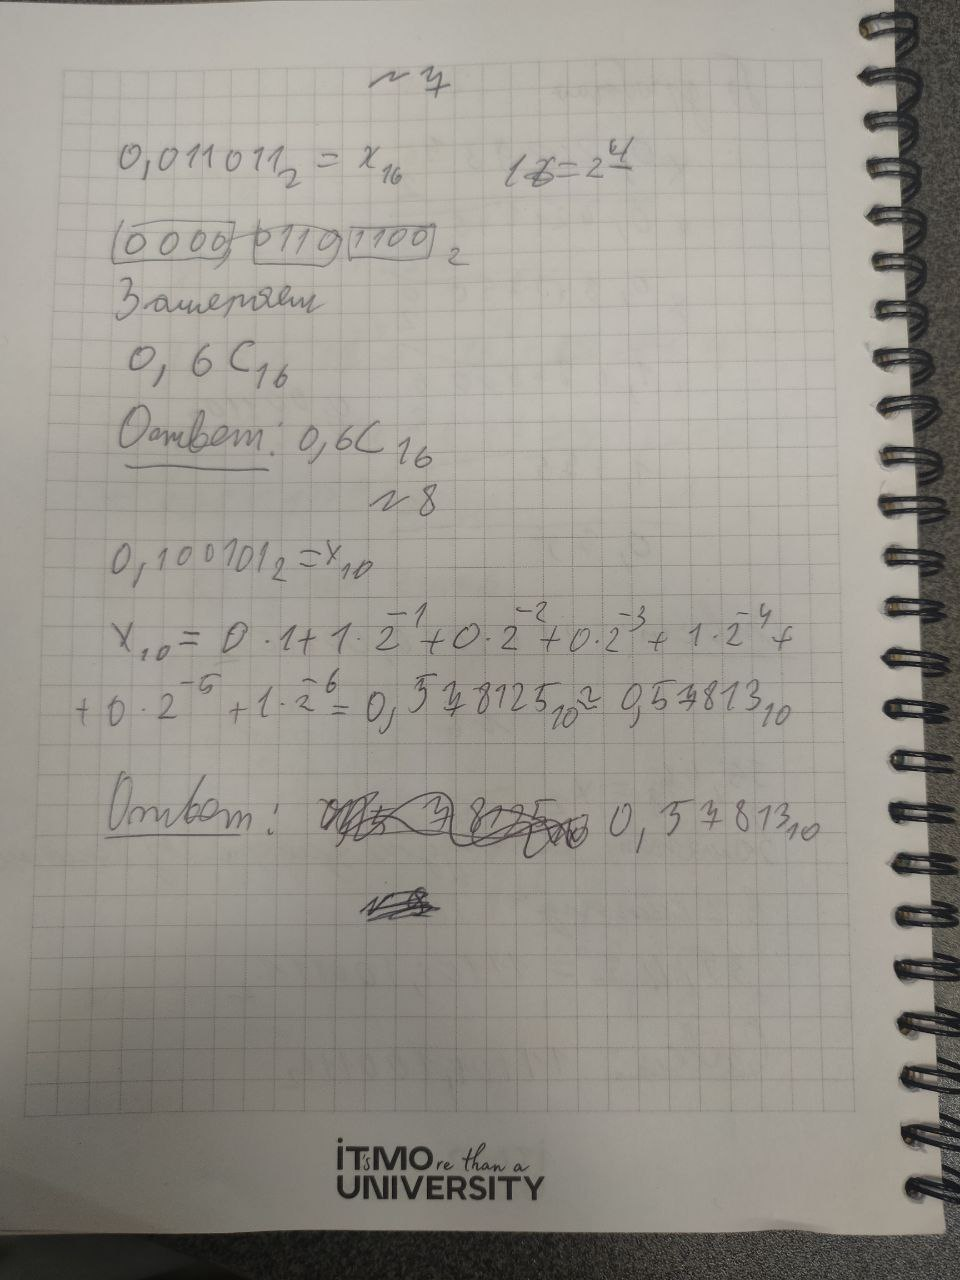 ~ 7
0,011011₂ = x₁₆ 16=2⁴
0000, 0110 1100 ₂
Заменяем
0, 6C₁₆
Ответ: 0,6C₁₆
~ 8
0,100101₂ = x₁₀
x₁₀ = 0·1+1·2⁻¹+0·2⁻²+0·2⁻³+1·2⁻⁴+
+0·2⁻⁵+1·2⁻⁶= 0,578125₁₀≈ 0,57813₁₀
Ответ: 0,57813₁₀
iT'sMOre than a
UNIVERSITY